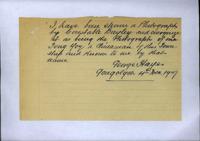 I have been shewn a Photograph
by Constable Bewley and recognise
it as being the Photograph of one
Tong Yoy, a Chinaman by this Town
ship and known to me by that
name.
George Hays
Targolyn 14th Dec 1907